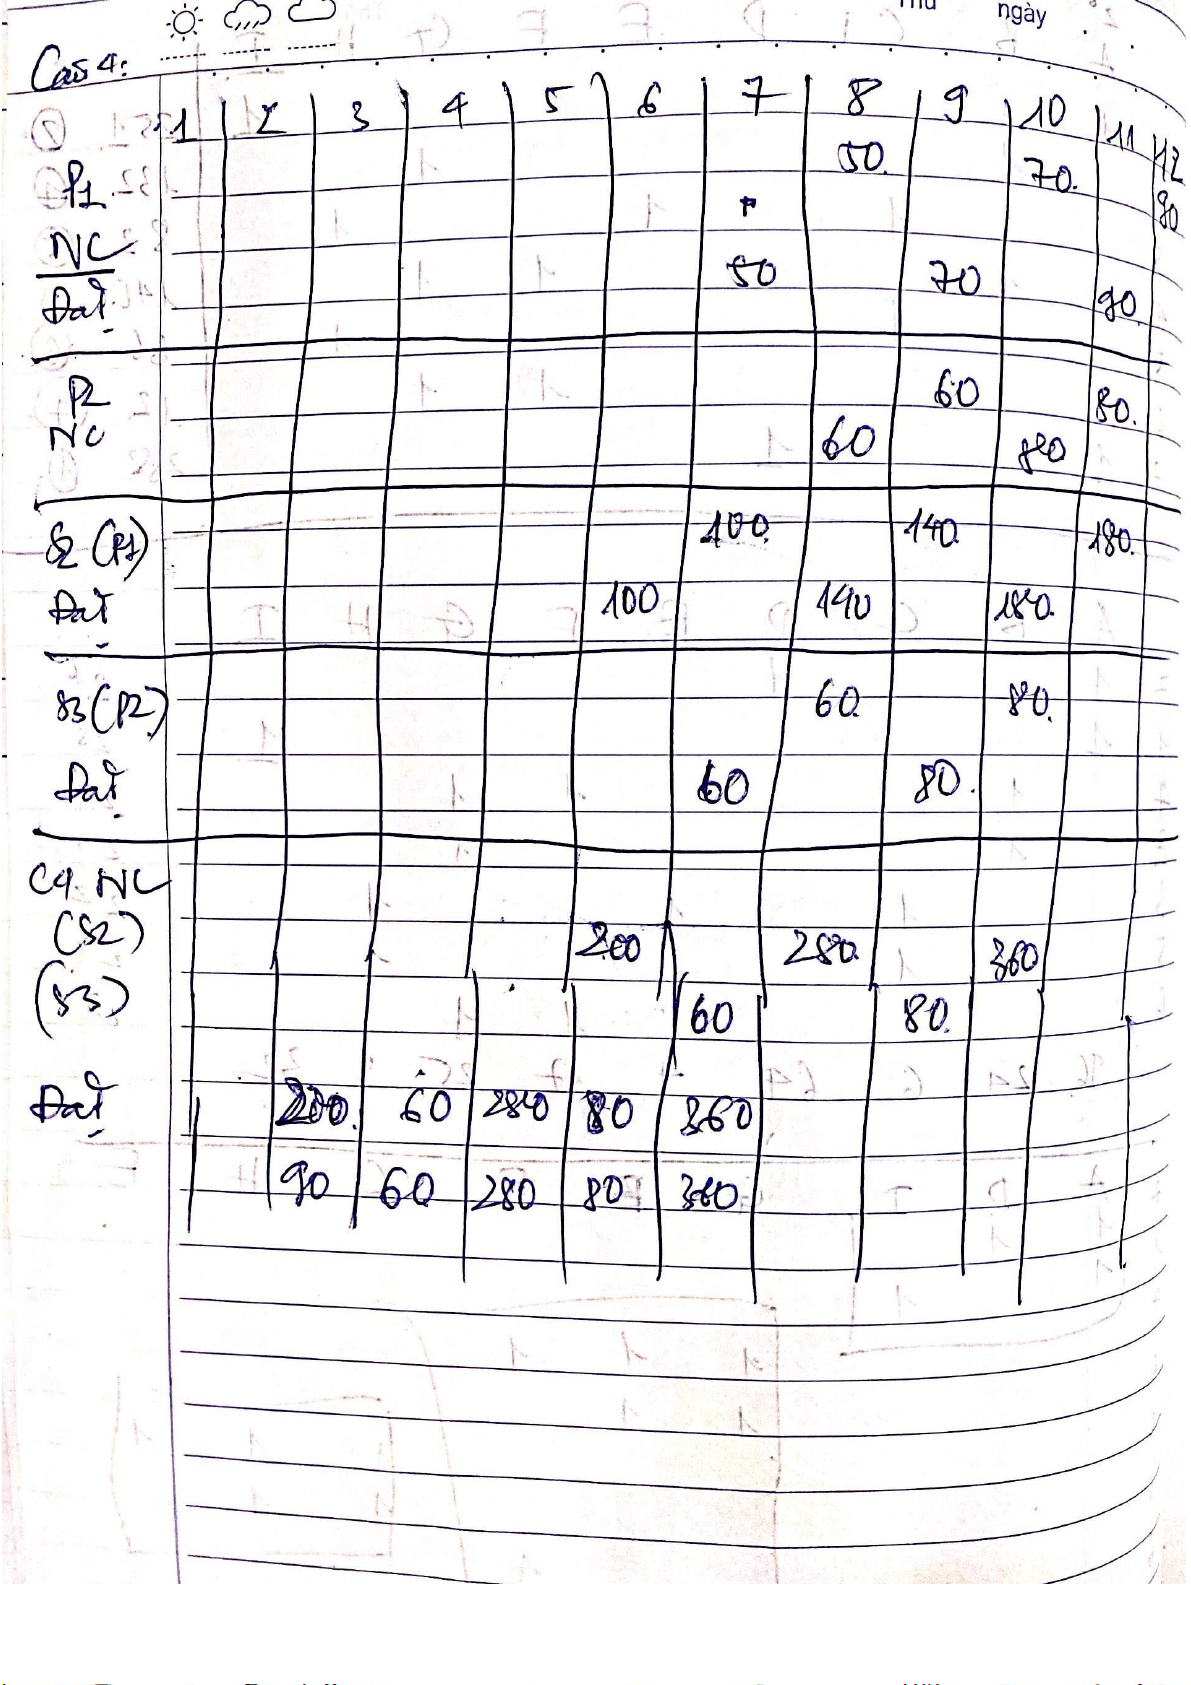 Thứ ngày
Case 4:
1 2 3 4 5 6 7 8 9 10 11 12
P1 50. 70. 90
NC
Đặt 50 70 90
P2 60 80.
NC 60 80
S2 (P1) 100. 140. 180.
Đặt 100 140 180.
S3 (P2) 60. 80.
Đặt 60 80.
C4. NC
(S2) 200 280. 360
(S3) 60 80.
Đặt 200. 60 280 80 360
90 60 280 80 360.